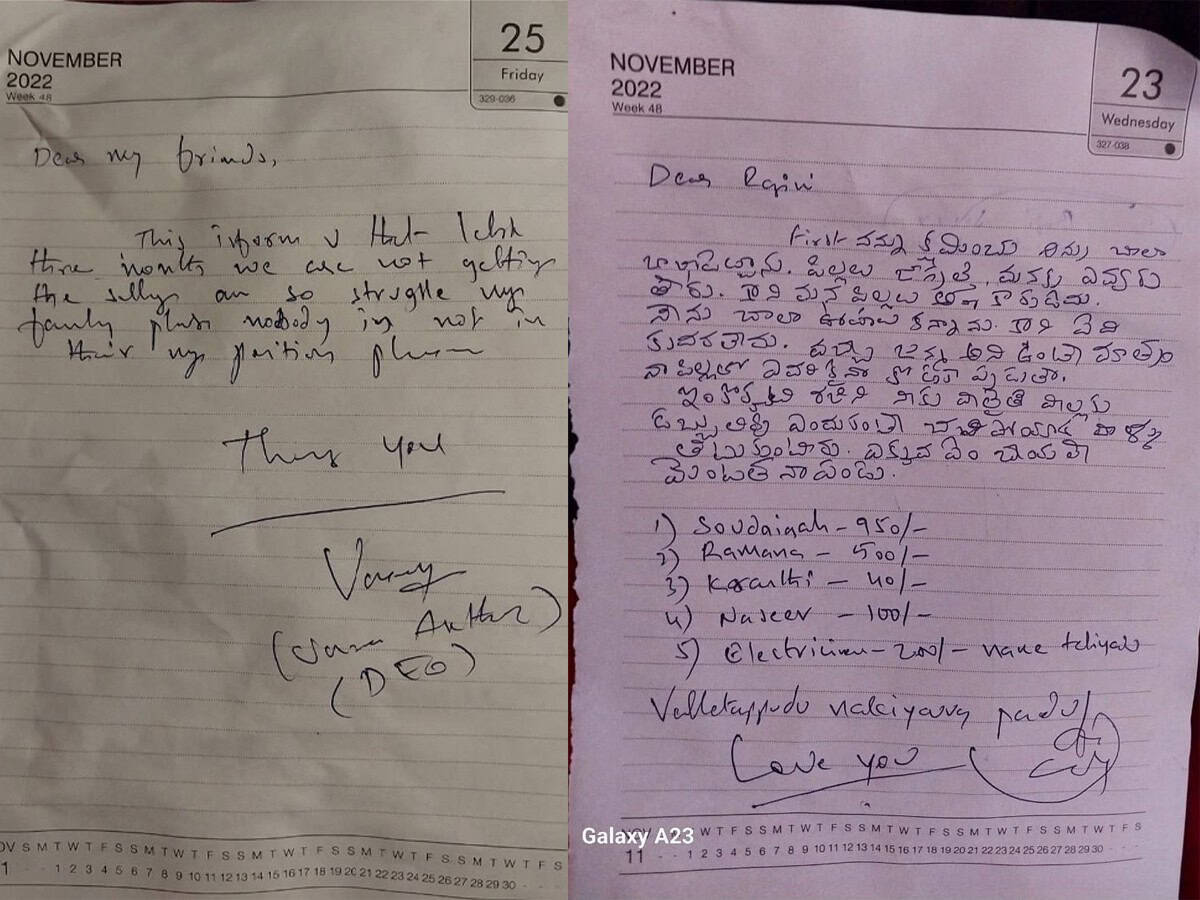 NOVEMBER
2022
Week 48
25
Friday
329-036
Dear my friends,
This inform u that last
three months we are not getting
the sallry an so strugtle my
family plus nobody is not in
their my position please
Thank you
(DEO)
NOV S M T W T F S S M T W T F S S M T W T F S S M T W T F S S M T W T F S
11 - - 1 2 3 4 5 6 7 8 9 10 11 12 13 14 15 16 17 18 19 20 21 22 23 24 25 26 27 28 29 30 - - -
NOVEMBER
2022
Week 48
23
Wednesday
327-038
Dear Rajini
First నన్ను క్షమించు నిన్ను చాలా
బాధపెట్టాను. పిల్లలు జాగ్రత్త. మనకు ఎవ్వరు
లేరు. కాని మన పిల్లలు అలా కాకూడదు.
నేను చాలా ఊహలు కన్నాను. కాని ఏది
కుదరలేదు. మళ్ళి జన్మ అని ఉంటే మాత్రం
నా పిల్లలలో ఎవరికైనా కొడుకుగా పుడుతా.
ఇంకొక్కటి రజిని నీకు వీలైతే వీల్లకు
డబ్బులు ఇవ్వు ఎందుకంటే చనిపోయాడ వాళ్ళు
తిట్టుకుంటారు. ఎక్కువ ఏం చేయలే
1) Soudaiah - 950/-
2) Ramana - 500/-
3) Kranthi - 40/-
4) Naseer - 100/-
5) Electrician - 200/- name teliyadu
Velletappudu nakiyavva
Love you
Galaxy A23
NOV S M T W T F S S M T W T F S S M T W T F S S M T W T F S S M T W T F S
11 - - 1 2 3 4 5 6 7 8 9 10 11 12 13 14 15 16 17 18 19 20 21 22 23 24 25 26 27 28 29 30 - - -